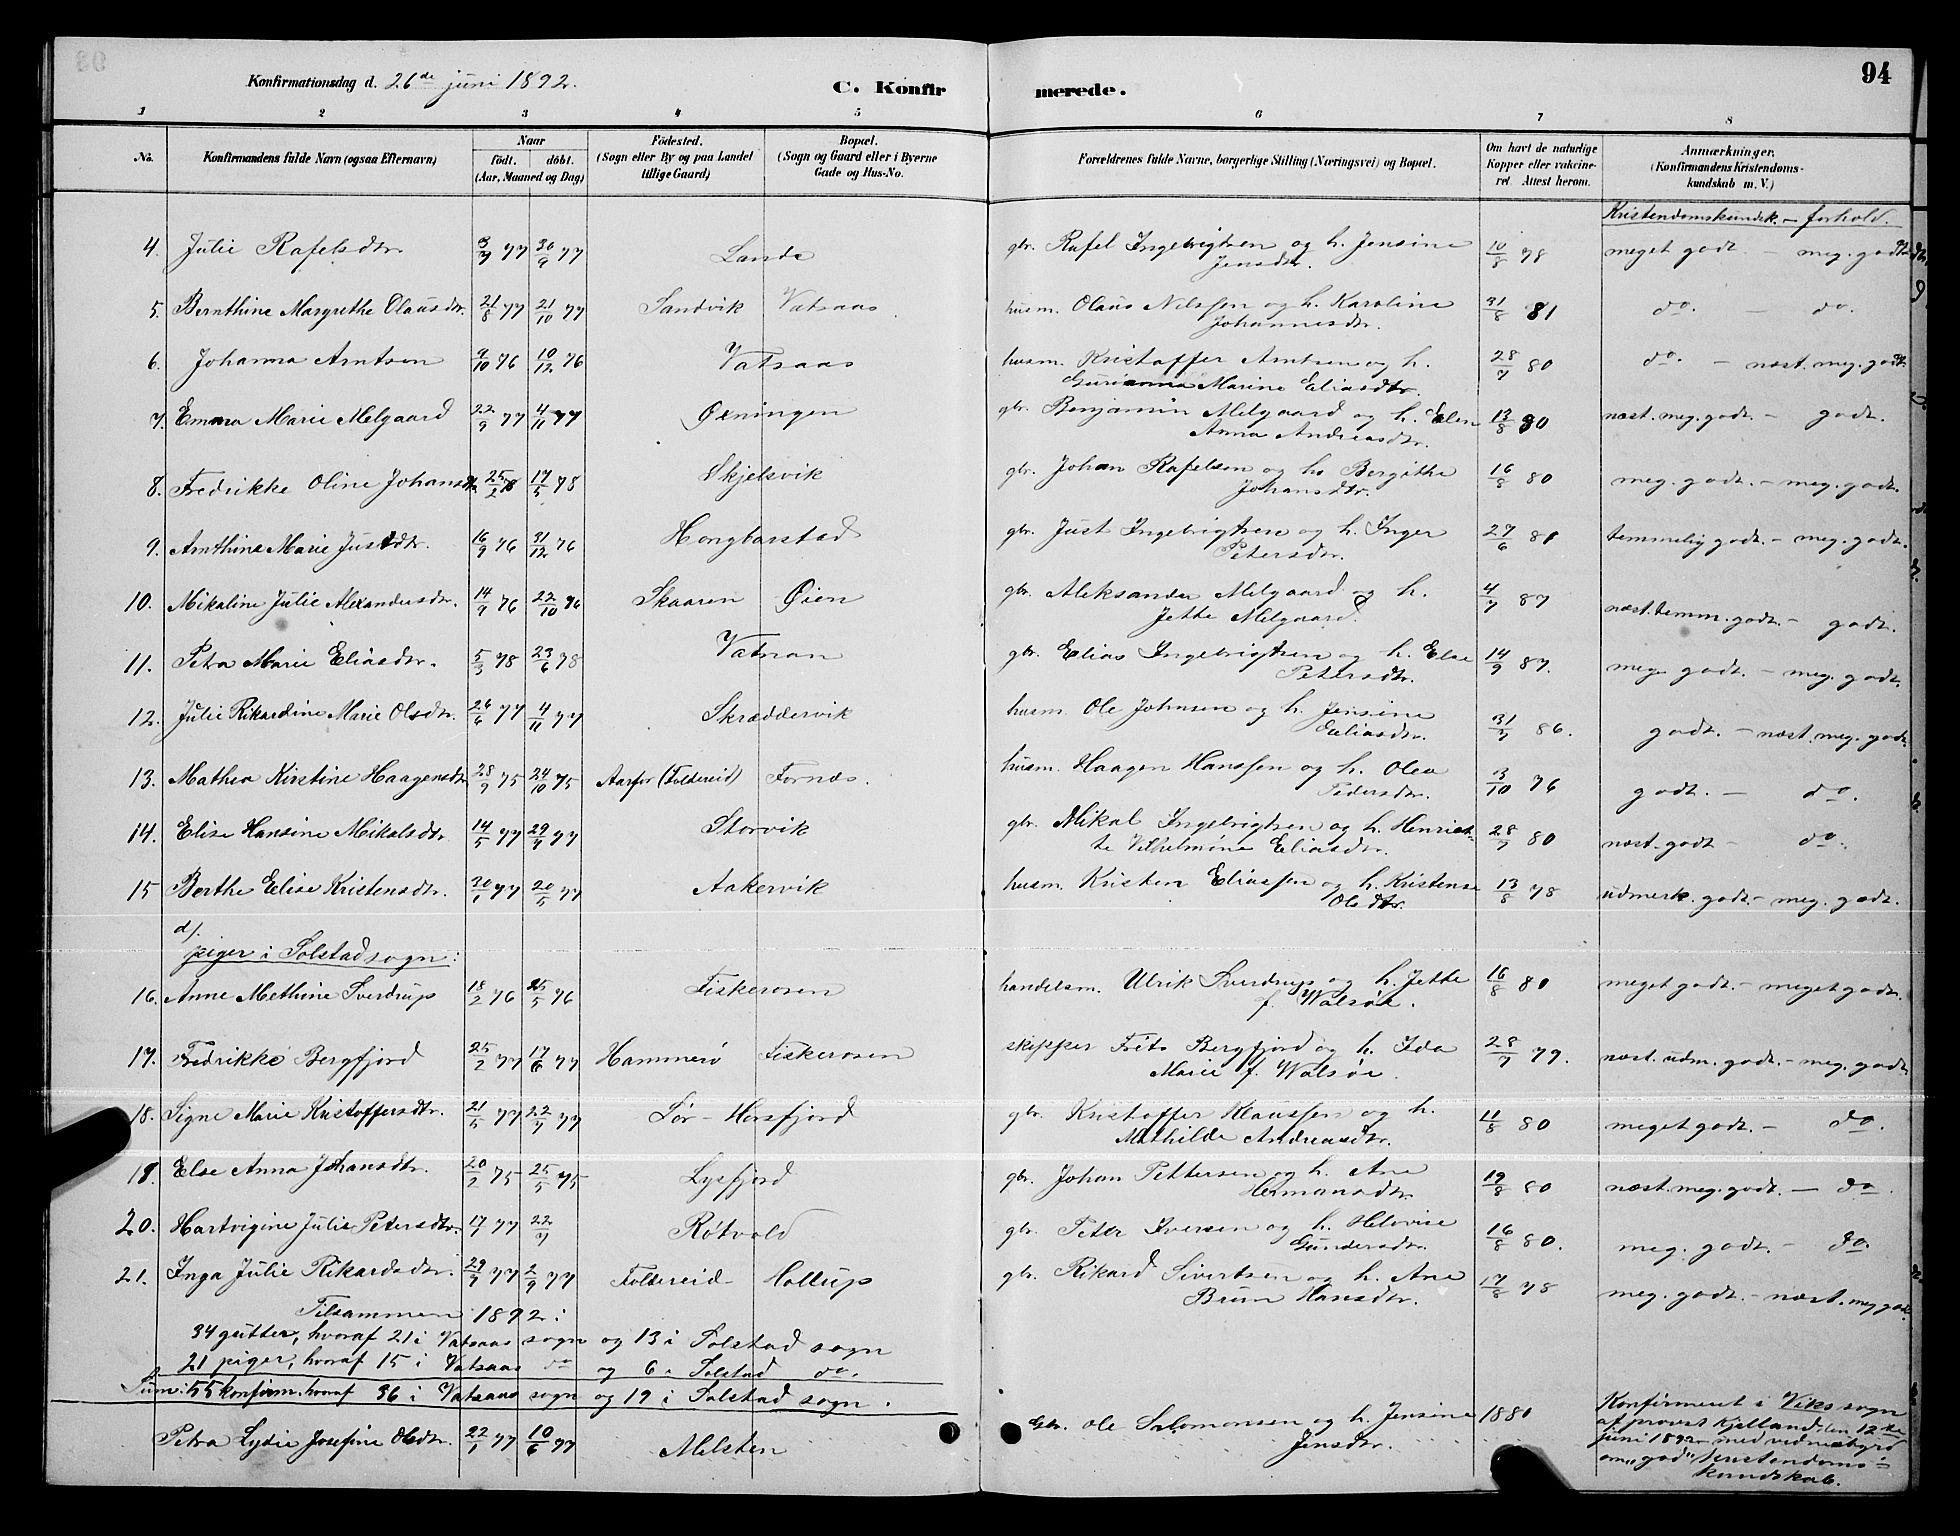 94
Konfirmationsdag d. 26de juni 1892.
C. Konfirmerede.
1 2 3 4 5 6 7 8
No. Konfirmandens fulde Navn (ogsaa Efternavn) Naar født. døbt. (Aar, Maaned og Dag) Fødested. (Sogn eller By og paa Landet tillige Gaard) Bopæl. (Sogn og Gaard eller i Byerne Gade og Hus-No. Forældrenes fulde Navne, borgerlige Stilling (Næringsvei) og Bopæl. Om havt de naturlige Kopper eller vakcineret. Attest herom. Anmærkninger. (Konfirmandens Kristendomskundskab m. V.)
Kristendomskundsk. – forhold.
4. Julie Rafelsdtr. 3/7 77 30/9 77 Lande gbr. Rafel Ingebrigtsen og h. Jensine Jensdtr. 10/8 78 meget godt. – meg. godt.
5. Bernthine Margrethe Olausdtr. 21/8 77 21/10 77 Sandvik Vatsaas husm. Olaus Nilssen og h. Karoline Johannesdtr. 31/8 81 do. – do.
6. Johanna Arntsen 9/10 76 10/12 76 Vatsaas husm. Kristoffer Arntsen og h. Gurianna Marine Eliasdtr. 28/7 80 do. – næst. meg. godt.
7. Emma Marie Melgaard 22/9 77 4/11 77 Øxningen gbr. Benjamin Melgaard og h. Elen Anna Andreasdtr. 13/8 80 næst. meg. godt. – godt.
8. Fredrikke Oline Johansdtr. 25/2 78 17/5 78 Skjelsvik gbr. Johan Rafelsen og h. Bergithe Johansdtr. 16/8 80 meg. godt. – meg. godt.
9. Arnthine Marie Justdtr. 16/9 76 31/12 76 Hongbarstad gbr. Just Ingebrigtsen og h. Inger Petersdtr. 27/6 81 temmelig godt. – meg. godt.
10. Mikaline Julie Alexandersdtr. 14/9 76 22/10 76 Skaaren Øien gbr. Aleksander Melgaard og h. Jette Melgaard. 4/7 87 næst. temm. godt. – godt.
11. Petra Marie Eliasdtr. 5/3 78 23/6 78 gbr. Elias Ingebrigtsen og h. Else Petersdtr. 14/9 87. meg. godt. – meg. godt.
12. Julie Rikardine Marie Olsdtr. 26/6 77 4/11 77 Skræddervik husm. Ole Johnsen og h. Jensine Eliasdtr. 31/7 86. godt. – næst. meg. godt.
13. Mathea Kirstine Haagensdtr. 28/9 75 24/10 75 Aarfor (Foldereid) Fornæs. husm. Haagen Hanssen og h. Olea Pedersdtr. 3/10 76 godt. – do.
14. Elise Hansine Mikalsdtr. 14/5 77 29/7 77 Storvik gbr. Mikal Ingebrigtsen og h. Henriette Vilhelmine Eliasdtr. 28/7 80 næst. godt – do.
15 Berthe Elise Kristensdtr. 30/1 77 20/5 77 Aakervik husm. Kristen Eliassen og h. Kristense Olsdtr. 13/8 78 udmerk. godt. – meg. godt.
d/. piger i Solstad sogn:
16. Anne Methine Sverdrup 18/2 76 25/5 76 Fiskerosen handelsm. Ulrik Sverdrup og h. Jette f. Walsøe. 16/8 80 meget godt. – meget godt.
17. Fredrikke Bergfjord 25/2 77 17/6 77 Hammerø Fiskerosen skipper Frits Bergfjord og h. Ida Marie f. Walsøe. 28/7 79. næst. udm. godt. – meg. godt.
18. Signe Marie Kristoffersdtr. 21/5 77 22/7 77 Sør-Horsfjord gbr. Kristoffer Klaussen og h. Mathilde Andreasdtr. 11/8 80 meget godt. – do.
19. Else Anna Johansdtr. 20/2 75 25/5 75 Lysfjord gbr. Johan Pettersen og h. Ane Hermansdtr. 19/8 80 næst. meg. godt. – do.
20. Hartvigine Julie Petersdtr. 17/1 77 22/7 Røtvold gbr. Peter Iversen og h. Helovise Gundersdtr. 16/8 80. meg. godt. – do.
21. Inga Julie Rikardsdtr. 29/7 77 2/9 77 Foldereid – Hollup gbr. Rikard Sivertsen og h. Ane Brun Hansdtr. 17/8 78 meg. godt. – næst. meg. godt.
Tilsammen 1892:
34 gutter, hvoraf 21 i Vatsaas sogn og 13 i Solstad sogn
21 piger, hvoraf 15 i Vatsaas do og 6 i Solstad do.
Sum: 55 konfirm. hvoraf 36 i Vatsaas sogn og 19 i Solstad sogn.
Petra Lydie Josefine Olsdtr. 22/1 77 10/6 77 Melsten Gbr. Ole Salomonsen og h. Jensine Jensdtr. 1880 Konfirmeret i Viks sogn
af provst Kjelland den 12te
juni 1892 med vidnesbyrd
om "god" kristendoms-
kundskab.